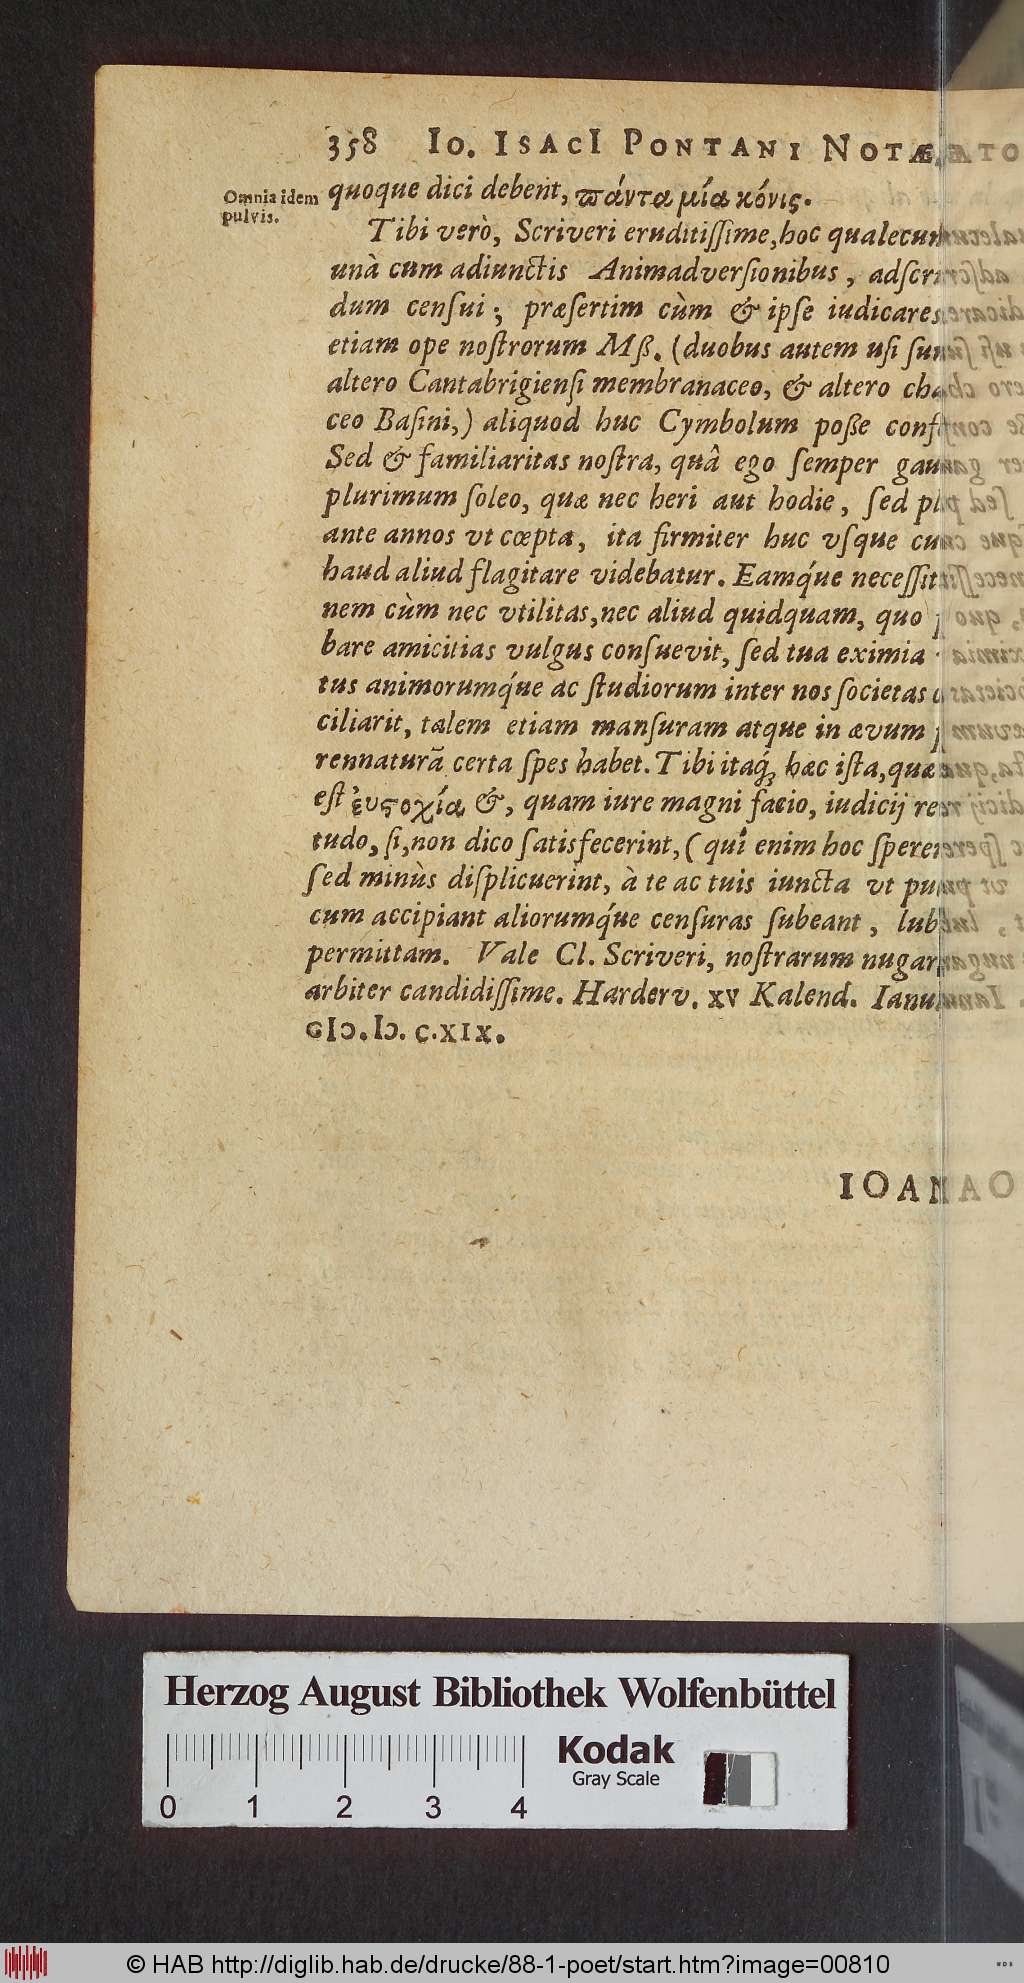 358 IO. ISACI PONTANI NOTÆ,
Omnia idem
pulvis.
quoque dici debent, πάντα μία κόνις.
Tibi verò, Scriveri eruditissime, hoc
unà cum adiunctis Animadversionibus,
dum censui; præsertim cùm & ipse iudicares
etiam ope nostrorum Mß. (duobus autem usi
altero Cantabrigiensi membranaceo, & altero
ceo Basini,) aliquod huc Cymbolum poße
Sed & familiaritas nostra, quâ ego semper
plurimum soleo, quæ nec heri aut hodie, sed
ante annos vt cœpta, ita firmiter huc vsque
haud aliud flagitare videbatur. Eamq́ue
nem cùm nec vtilitas, nec aliud quidquam, quo
bare amicitias vulgus consuevit, sed tua eximia
tus animorumq́ue ac studiorum inter nos societas
ciliarit, talem etiam mansuram atque in ævum
rennaturã certa spes habet. Tibi itaq́; hæc ista, quæ
est ἐυςοχία &, quam iure magni facio, iudicij
tudo, si, non dico satisfecerint, (quî enim hoc
sed minùs displicuerint, à te ac tuis iuncta vt
cum accipiant aliorumq́ue censuras subeant,
permittam. Vale Cl. Scriveri, nostrarum
arbiter candidissime. Harderv. XV Kalend.
CIↃ. IↃ. C. XIX.
Herzog August Bibliothek Wolfenbüttel
Kodak
Gray Scale
0 1 2 3 4
© HAB http://diglib.hab.de/drucke/88-1-poet/start.htm?image=00810